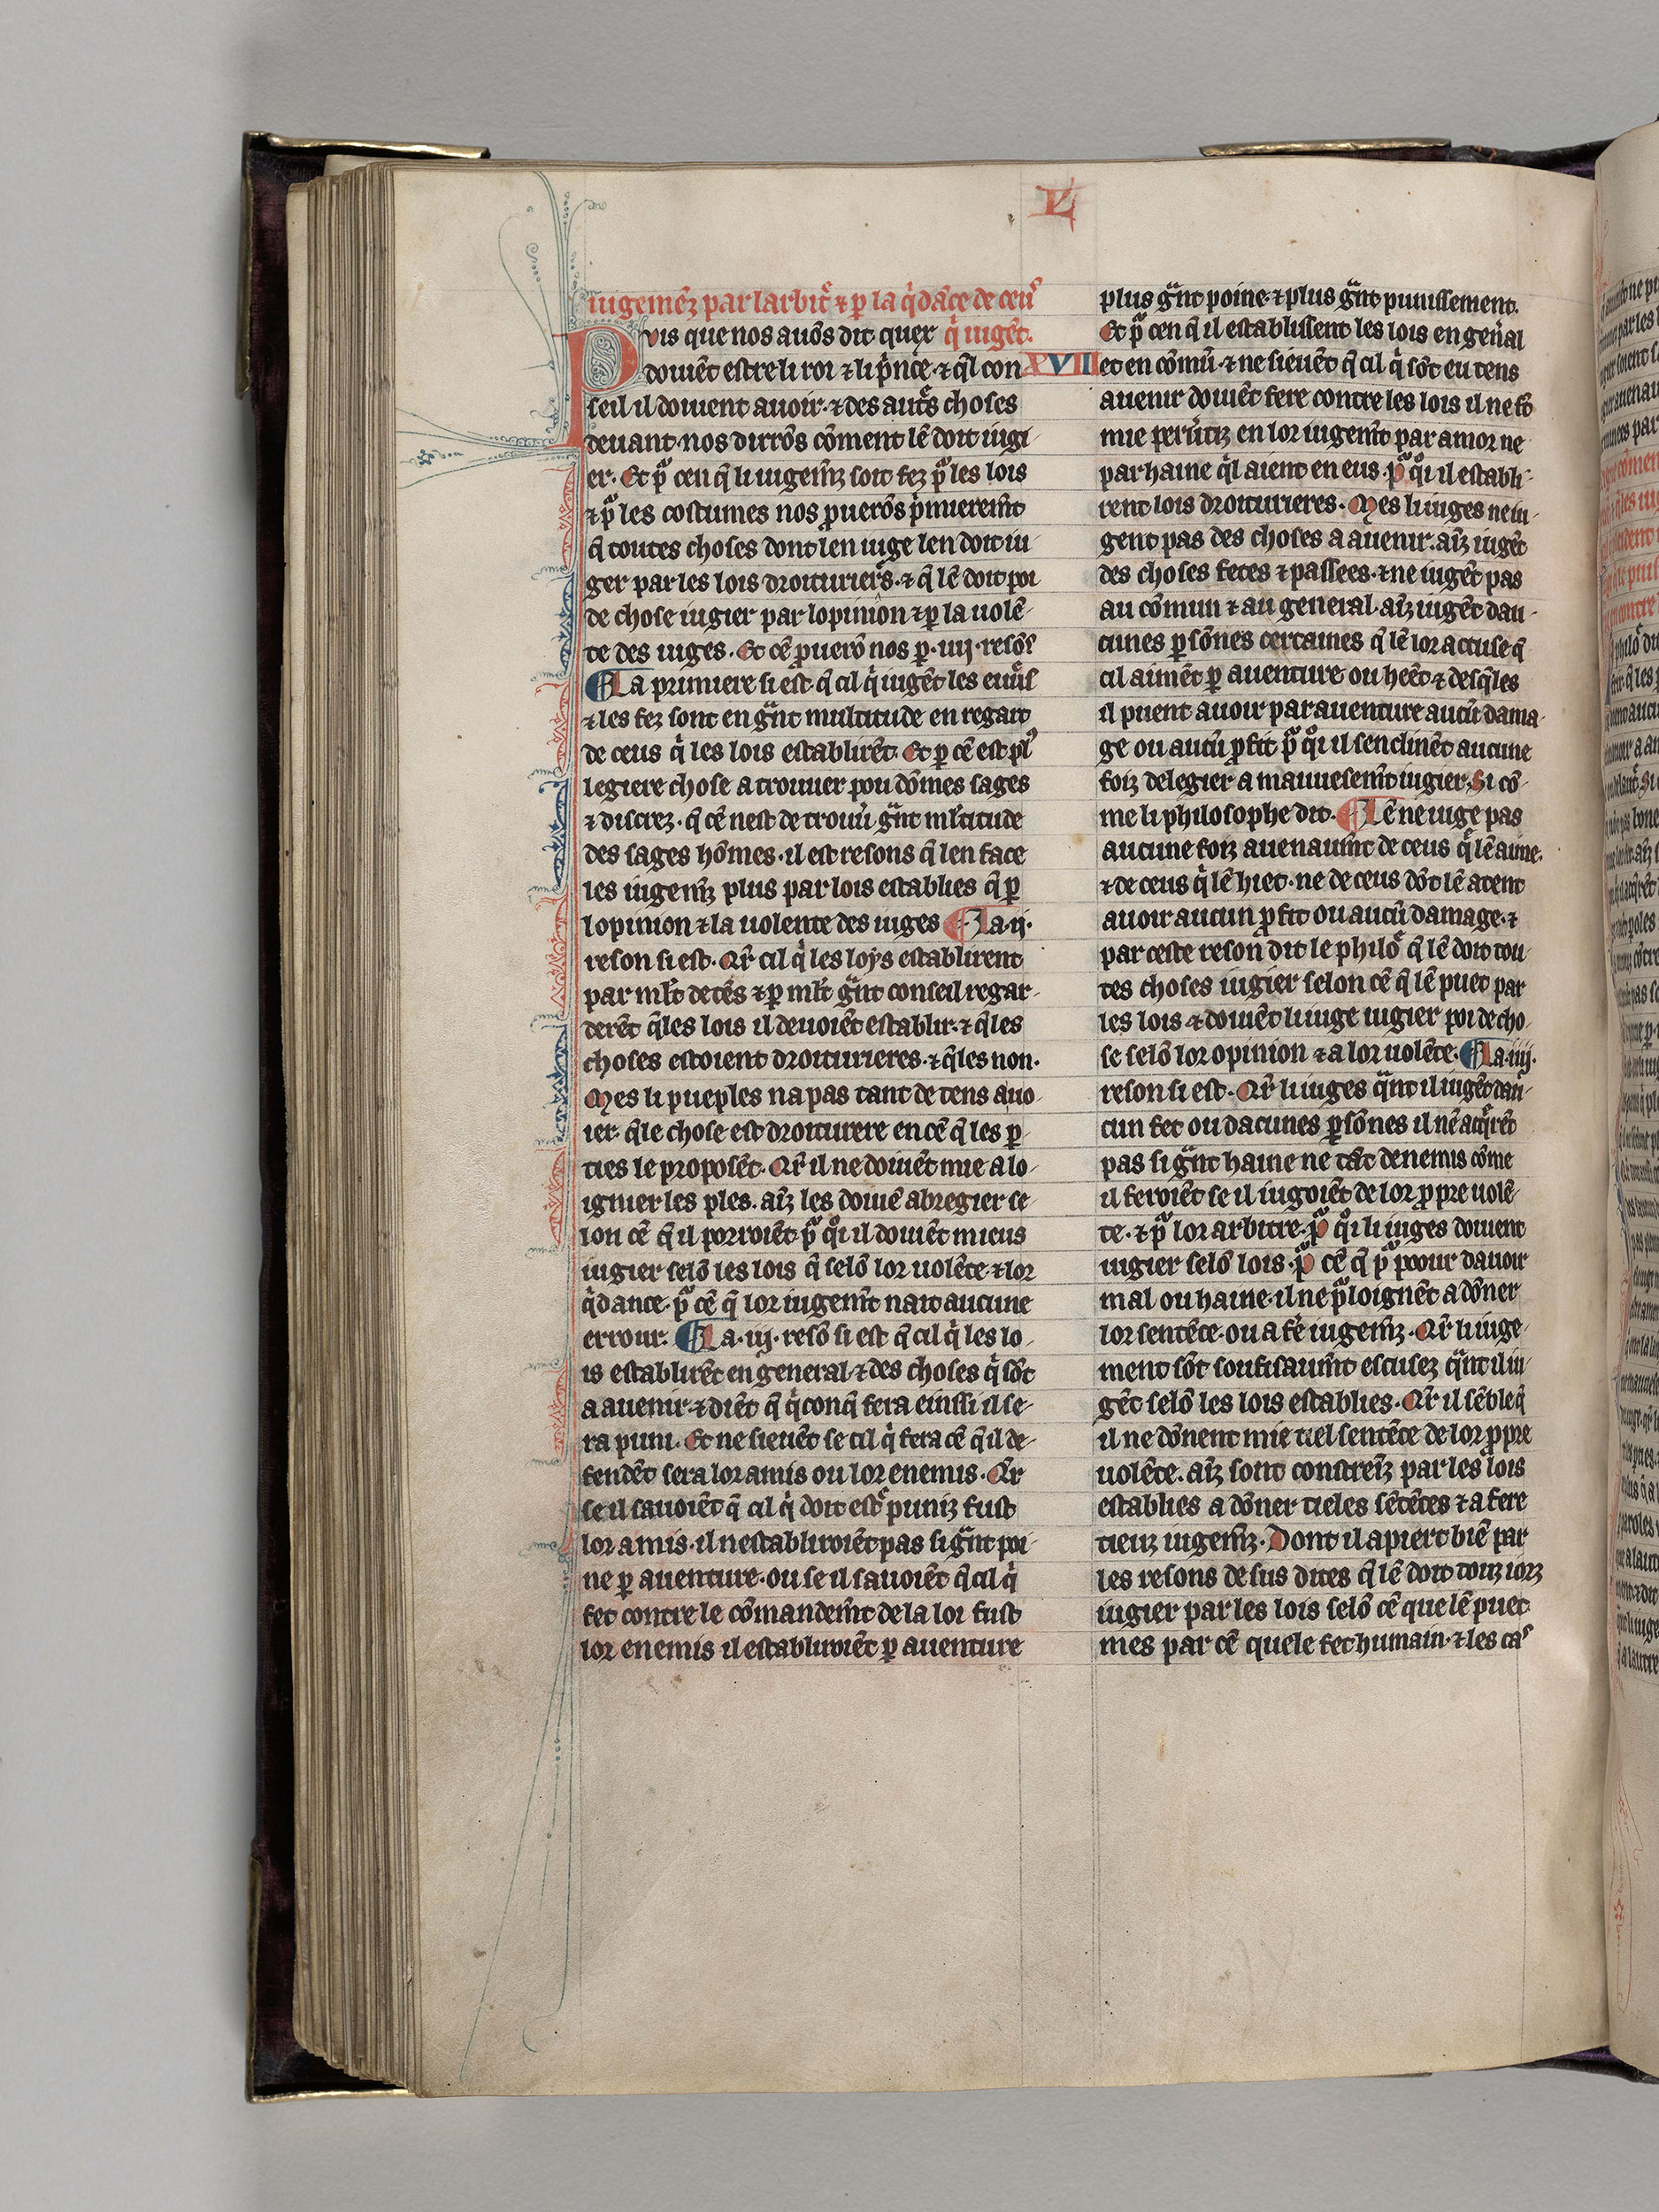 L
iugemēz par larbitͬ ⁊ ꝑ la q̇dāce de ceuˢ
Puis que nos auōs dit quex q̇ iugēt.
doiuēt estre li roi ⁊ li pͥnce ⁊ q̄l con
XVII
seil il doiuent auoir ⁊ des autͬs choses
deuant nos dirrōs cōment lē doit iugi-
er. Et pͣ cen q̄ li iugem̄z soit fez pͣ les lois
⁊ pͣ les costumes nos ꝓuerōs pͥmierem̄t
q̄ toutes choses dont len iuge len doit iu-
ger par les lois droiturieͬs. ⁊ q̄ lē doit poi
de chose iugier par lopinion ⁊ ꝑ la uolē-
te des iuges. Et cē ꝓuerō nos ꝑ .iiij. resōs
¶ La primiere si est q̄ cil q̇ iugēt les euūs
⁊ les fez sont en gͣnt multitude en regart
de ceus q̇ les lois establirēt. Et ꝑ cē est plˢ
legiere chose a trouuer pou dōmes sages
⁊ discrez. q̄ cē nest de trouū gͣnt ml̄titude
des sages hōmes. il est resons q̄ len face
les iugem̄z plus par lois establies q̄ ꝑ
lopinion ⁊ la uolente des iuges ¶ La .ij.
reson si est. Qr̄ cil q̇ les loys establirent
par ml̄t de tēs ⁊ ꝑ ml̄t gͣnt conseil regar-
derēt q̄les lois il deuoiēt establir. ⁊ q̄les
choses estoient droiturieres. ⁊ q̄les non.
Mes li pueples na pas tant de tens a uo-
ier q̄le chose est droiturere en cē q̄ les ꝑ-
ties le proposēt. Qr̄ il ne doiuēt mie a lo-
ignier les ples. aīz les doiuē abregier se-
lon cē q̄ il porroiēt pͣ qͦi il doiuēt mieus
iugier selō les lois q̄ selō lor uolēte ⁊ lor
q̇dance. pͣ cē q̄ lor iugem̄t nait aucune
errour. ¶ La .iij. resō si est q̄ cil q̇ les lo-
is establirēt en general ⁊ des choses q̇ sōt
a auenir ⁊ diēt q̄ q̇conq̄ fera einssi il se-
ra puni. Et ne sieuēt se cil q̇ fera cē q̄ il de-
fendēt sera lor amis ou lor enemis. Qr̄
se il sauoiēt q̄ cil q̇ doit estͬ puniz fust
lor amis. il nestabliroiēt pas si gͣnt poi-
ne ꝑ auenture. ou se il sauoiēt q̄ cil q̇
fet contre le cōmandem̄t de la loi fust
lor enemis il establiroiēt ꝑ auenture
plus gͣnt poine. ⁊ plus gͣnt punissement.
Et pͣ cen q̄ il establissent les lois en geñal
et en cōmū. ⁊ ne sieuēt q̄ cil q̇ sōt eu tens
auenir doiuēt fere contre les lois il ne sō
mie peruīz en lor iugem̄t par amor ne
par haine q̇l aient en eus. pͣ qͦi il establi-
rent lois droiturieres. Mes li iuges ne iu-
gent pas des choses a auenir. aīz iugēt
des choses fetes ⁊ passees. ⁊ ne iugēt pas
au cōmun ⁊ au general. aīz iugēt dau-
cunes ꝑsōnes certaines q̄ lē lor accuse q̄
cil aimēt ꝑ auenture ou heēt ⁊ desq̄les
il puent auoir par auenture aucū dama-
ge ou aucū ꝓfit pͣ qͦi il senclinēt aucune
foiz de legier a mauuesem̄t iugier. Si cō-
me li philosophe dit. ¶ Lē ne iuge pas
aucune foiz auenaum̄t de ceus q̇ lē aime.
⁊ de ceus q̇ lē hiet. ne de ceus dōt lē atent
auoir aucun ꝓfit ou aucū damage. ⁊
par ceste reson dit le philōͬ q̄ lē doit tou-
tes choses iugier selon cē q̄ lē puet par
les lois ⁊ doiuēt li iuge iugier poi de cho-
se selō lor opinion ⁊ a lor uolēte. ¶ La .iiij.
reson si est. Qr̄ li iuges qͣnt il iugēt dau-
cun fet ou dacunes ꝑsōnes il nē acq̇rēt
pas si gͣnt haine ne tāt denemis cōme
il feroiēt se il iugoiēt de lor ꝓpre uolē-
te. ⁊ pͣ lor arbitre. pͣ qͦi li iuges doiuent
iugier selō lois. pͣ cē q̄ pͣ poour dauoir
mal ou haine. il ne pͣloignēt a dōner
lor sentēce. ou a fē iugem̄z. Qr̄ li iuge-
ment sōt soufisaum̄t escusez qͣnt il iu-
gēt selō les lois establies. Qr̄ il sēble q̄
il ne dōnent mie tiel sentēce de lor ꝓpre
uolēte. aīz sont constreīz par les lois
establies a dōner tieles sētētes ⁊ a fere
tieuz iugem̄z. Dont il apiert biē par
les resons de sus dites q̄ lē doit touz iorz
iugier par les lois selō cē que lē puet
mes par cē que le fet humain. ⁊ les caˢ